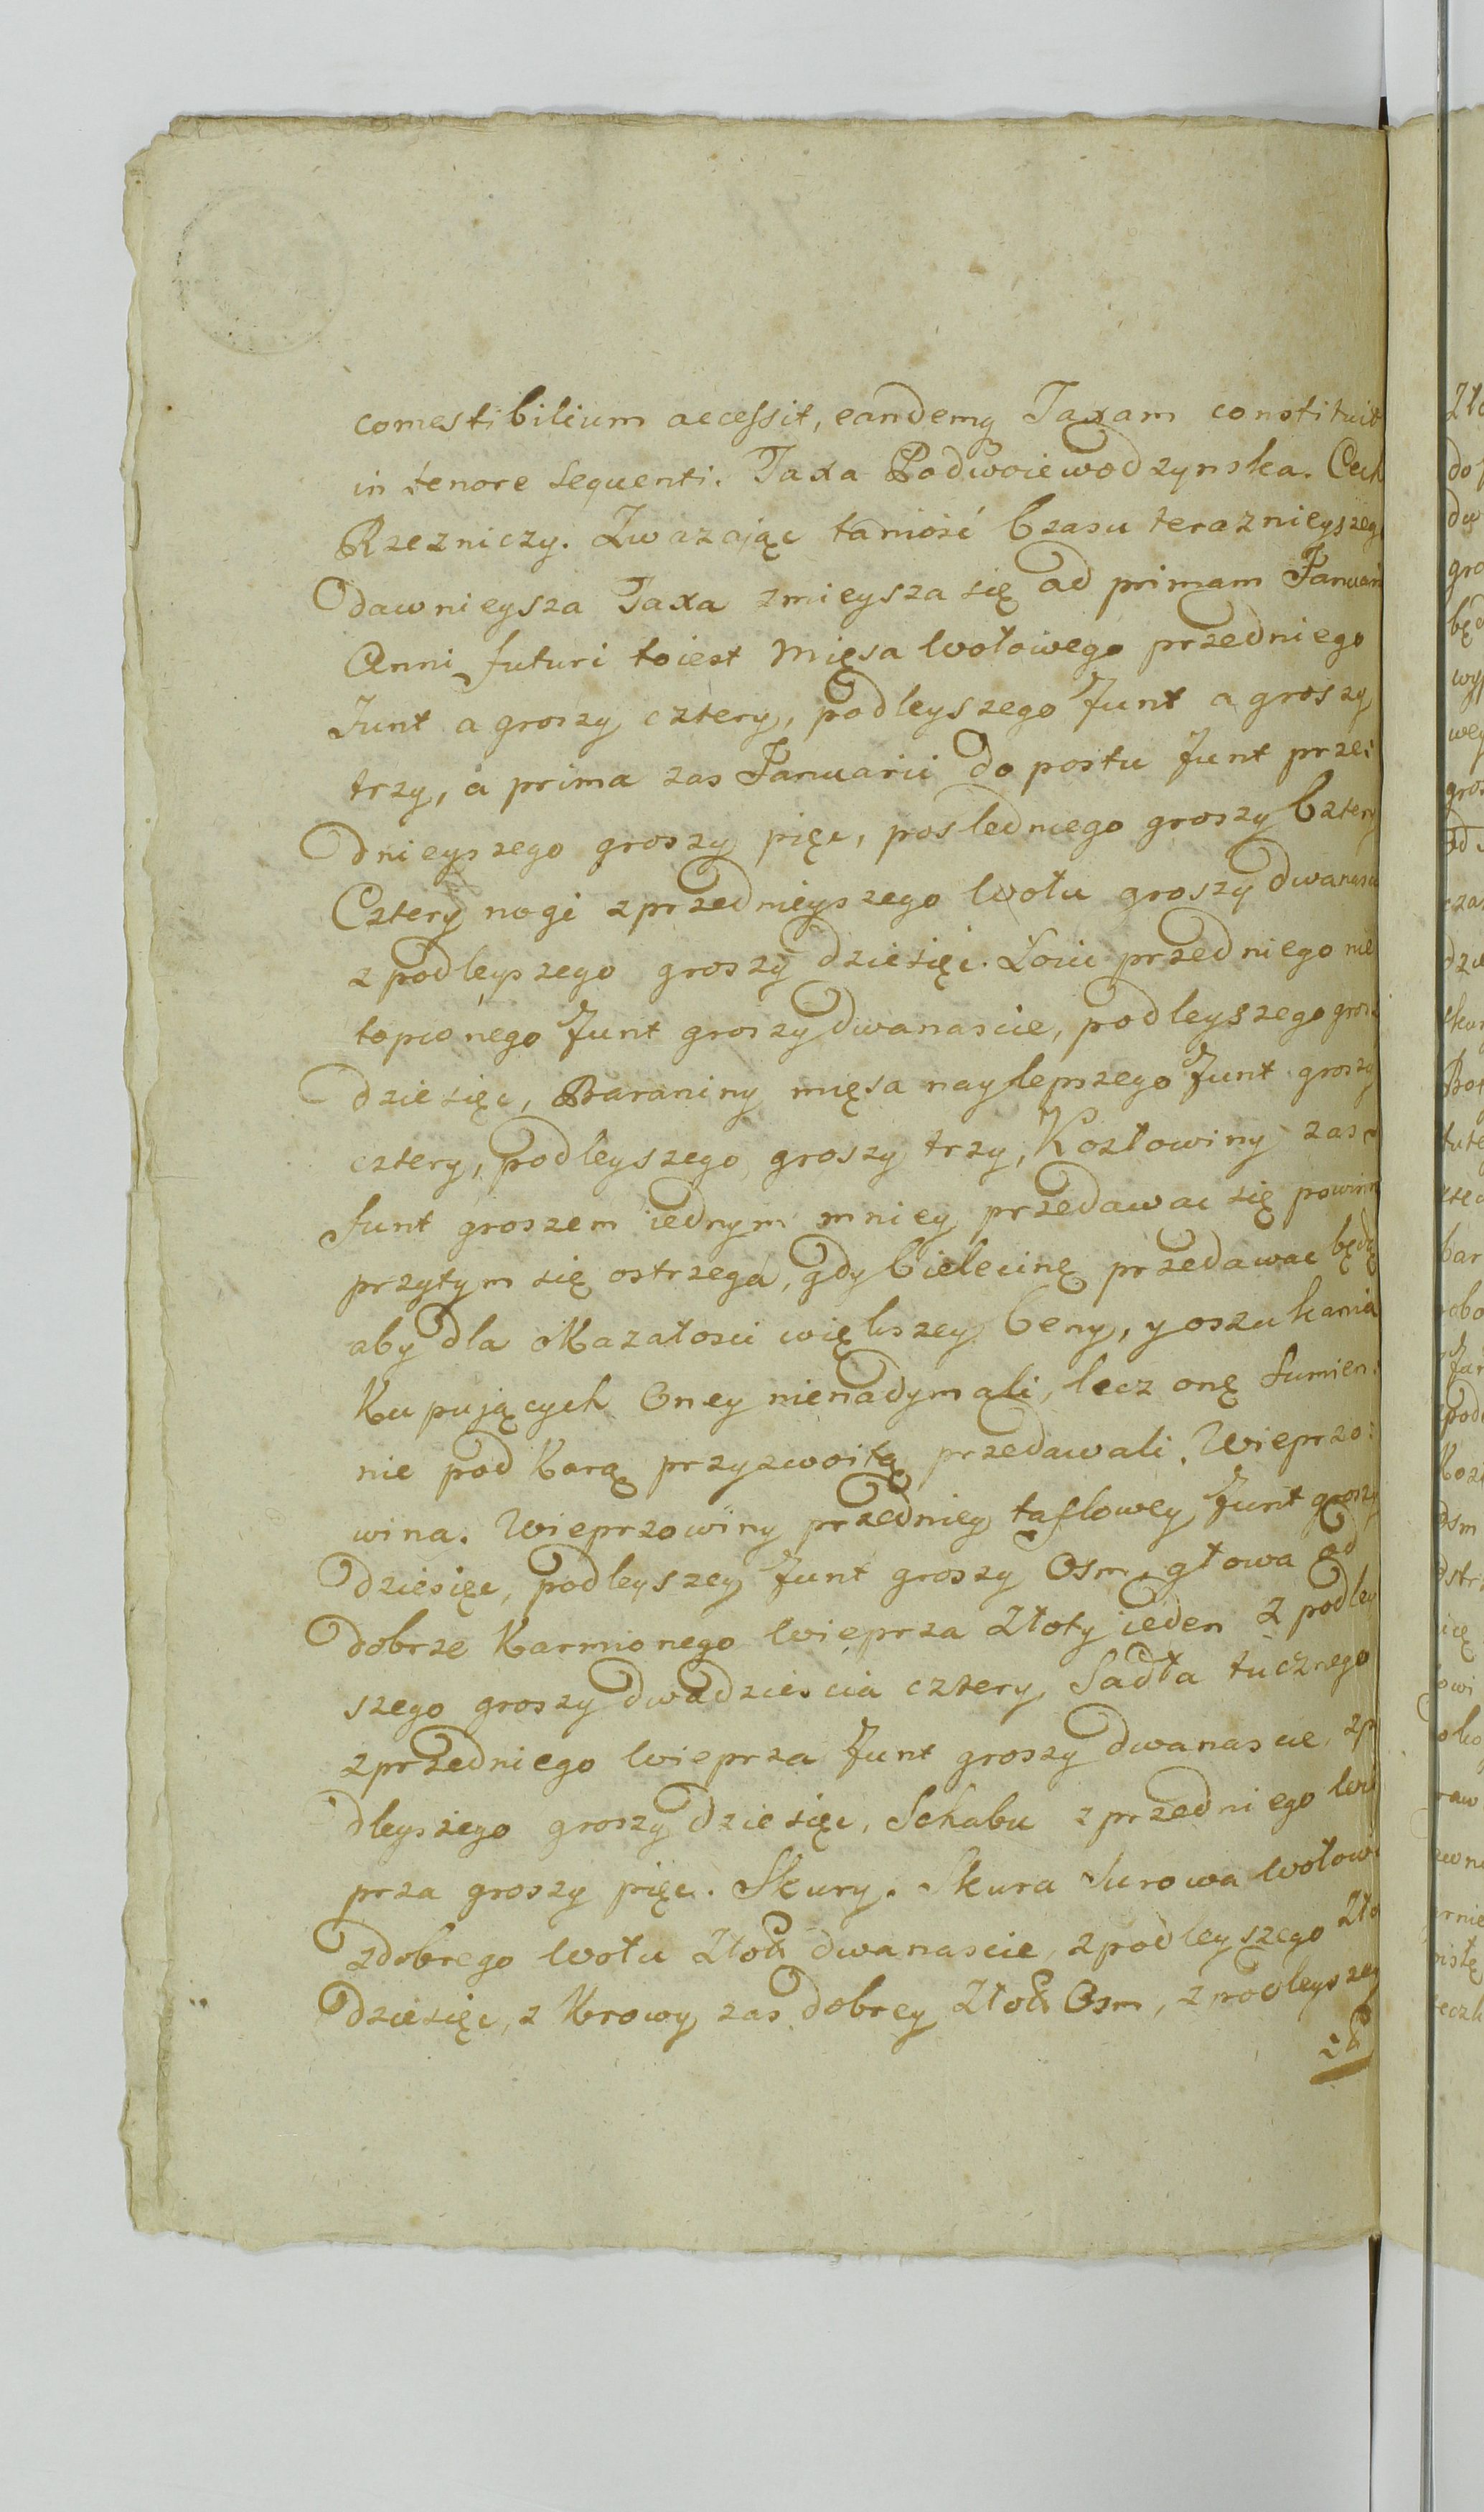 comestibilium accessit, eandemq Taxam constituit
in tenore sequenti. Taxa Podwoiewodzynska. Cech
Rzezniczy. Zwazając taniość Czasu teraznieyszeg
dawnieysza Taxa zmieysza się ad primam Januarii
Anni futuri toiest Mięsa Wołowego przedniego
Funt a groszy cztery, podleyszego Funt a groszy
trzy, a prima zas Januarii do postu Funt prze:
dnieyszego groszy pięc, posledniego groszy Cztery
Cztery nogi z przednieyszego Wołu groszy dwanascie
z podleyszego groszy dziesięc. Łoiu przedniego nie
topionego Funt groszy dwanascie, podleyszego grosz
dziesięc, Baraniny mięsa naylepszego Funt groszy
cztery, podleyszego groszy trzy, Kozłowiny zas
funt groszem iednym mniey przedawac się powinn
przytym się ostrzega, gdy Cielecinę przedawac będą
aby dla okazałosci większey Ceny, y oszukania
Kupujących Oney nienadymali, lecz onę Sumien:
nie pod Karą przyzwoitą przedawali. Wieprzo:
wina. Wieprzowiny przedniey taflowey Funt groszy
dziesięc, podleyszey Funt groszy Osm, głowa od
dobrze Karmionego Wieprza Złoty ieden z podley
szego groszy dwadziescia cztery, Sadła tucznego
z przedniego Wieprza Funt groszy dwanascie, zp
dleyszego groszy dziesięc, Schabu z przedniego Wie
prza groszy pięc. Skury. Skura Surowa Wołow
zdobrego Wołu Złoth dwanascie, z podleyszego Zło
dziesięc, z Krowy zas dobrey Złoth Osm, z podleyszey